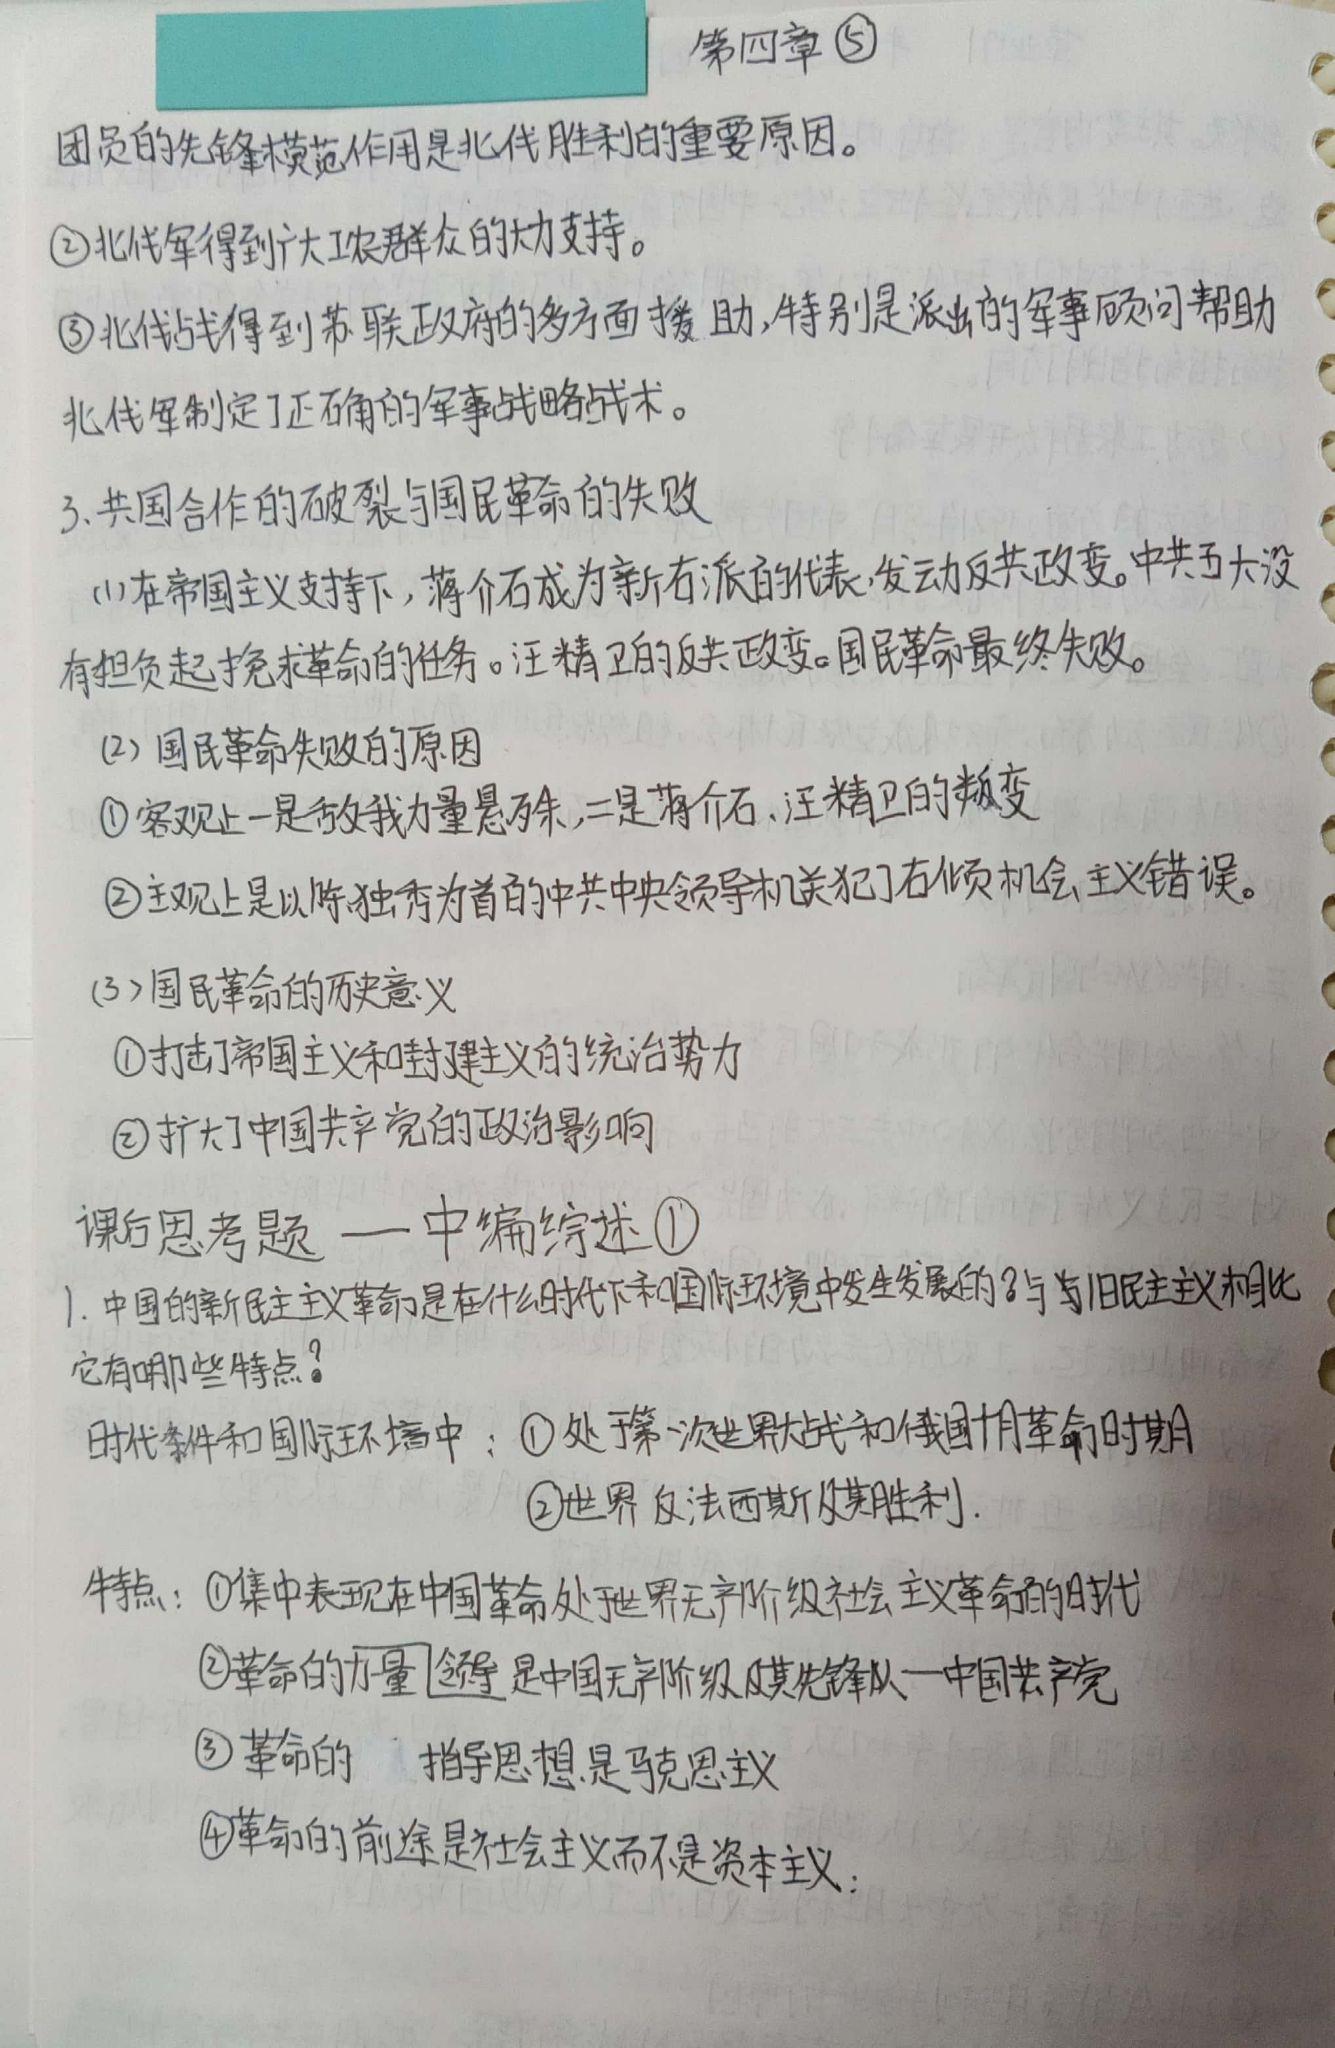 第四章⑤
团员的先锋模范作用是北伐胜利的重要原因。
②北伐军得到广大工农群众的大力支持。
③北伐战得到苏联政府的多方面援助,特别是派出的军事顾问帮助
北伐军制定了正确的军事战略战术。
3、共国合作的破裂与国民革命的失败
(1)在帝国主义支持下,蒋介石成为新右派的代表,发动反共政变。中共五大没
有担负起挽求革命的任务。汪精卫的反共政变。国民革命最终失败。
(2)国民革命失败的原因
①客观上一是敌我力量悬殊,二是蒋介石、汪精卫的叛变
②主观上是以陈独秀为首的中共中央领导机关犯了右倾机会主义错误。
(3)国民革命的历史意义
①打击了帝国主义和封建主义的统治势力
②扩大了中国共产党的政治影响
课后思考题 — 中编综述①
1.中国的新民主主义革命是在什么时代下和国际环境中发生发展的?与与旧民主主义相比
它有哪些特点?
时代条件和国际环境中:①处于第一次世界大战和俄国十月革命时期
②世界反法西斯及其胜利.
特点:①集中表现在中国革命处于世界无产阶级社会主义革命的时代
②革命的力量领导是中国无产阶级及其先锋队—中国共产党
③革命的 指导思想是马克思主义
④革命的前途是社会主义而不是资本主义;